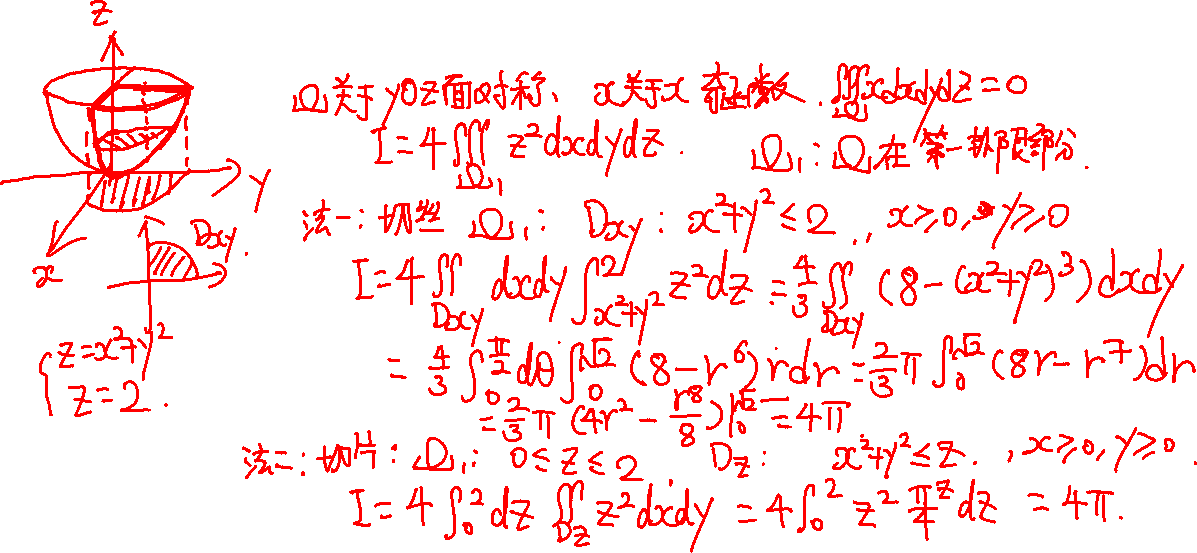 z
Ω关于yOz面对称、x关于x奇函数.∭_Ω xdxdydz=0
I=4∭_Ω₁ z²dxdydz. Ω₁:Ω在第一卦限部分.
y
法一:切丝 Ω₁: Dxy: x²+y²≤2, x≥0, y≥0
x
Dxy.
I=4∬_Dxy dxdy∫_{x²+y²}^2 z²dz=4/3∬_Dxy (8-(x²+y²)³)dxdy
{z=x²+y²
z=2.
=4/3∫_0^{π/2}dθ∫_0^{√2}(8-r⁶)rdr=2/3π∫_0^{√2}(8r-r⁷)dr
=2/3π(4r²-r⁸/8)|_0^{√2}=4π
法二:切片:Ω₁: 0≤z≤2 Dz: x²+y²≤z., x≥0, y≥0.
I=4∫_0^2dz∬_Dz z²dxdy=4∫_0^2 z² π/4 z dz=4π.